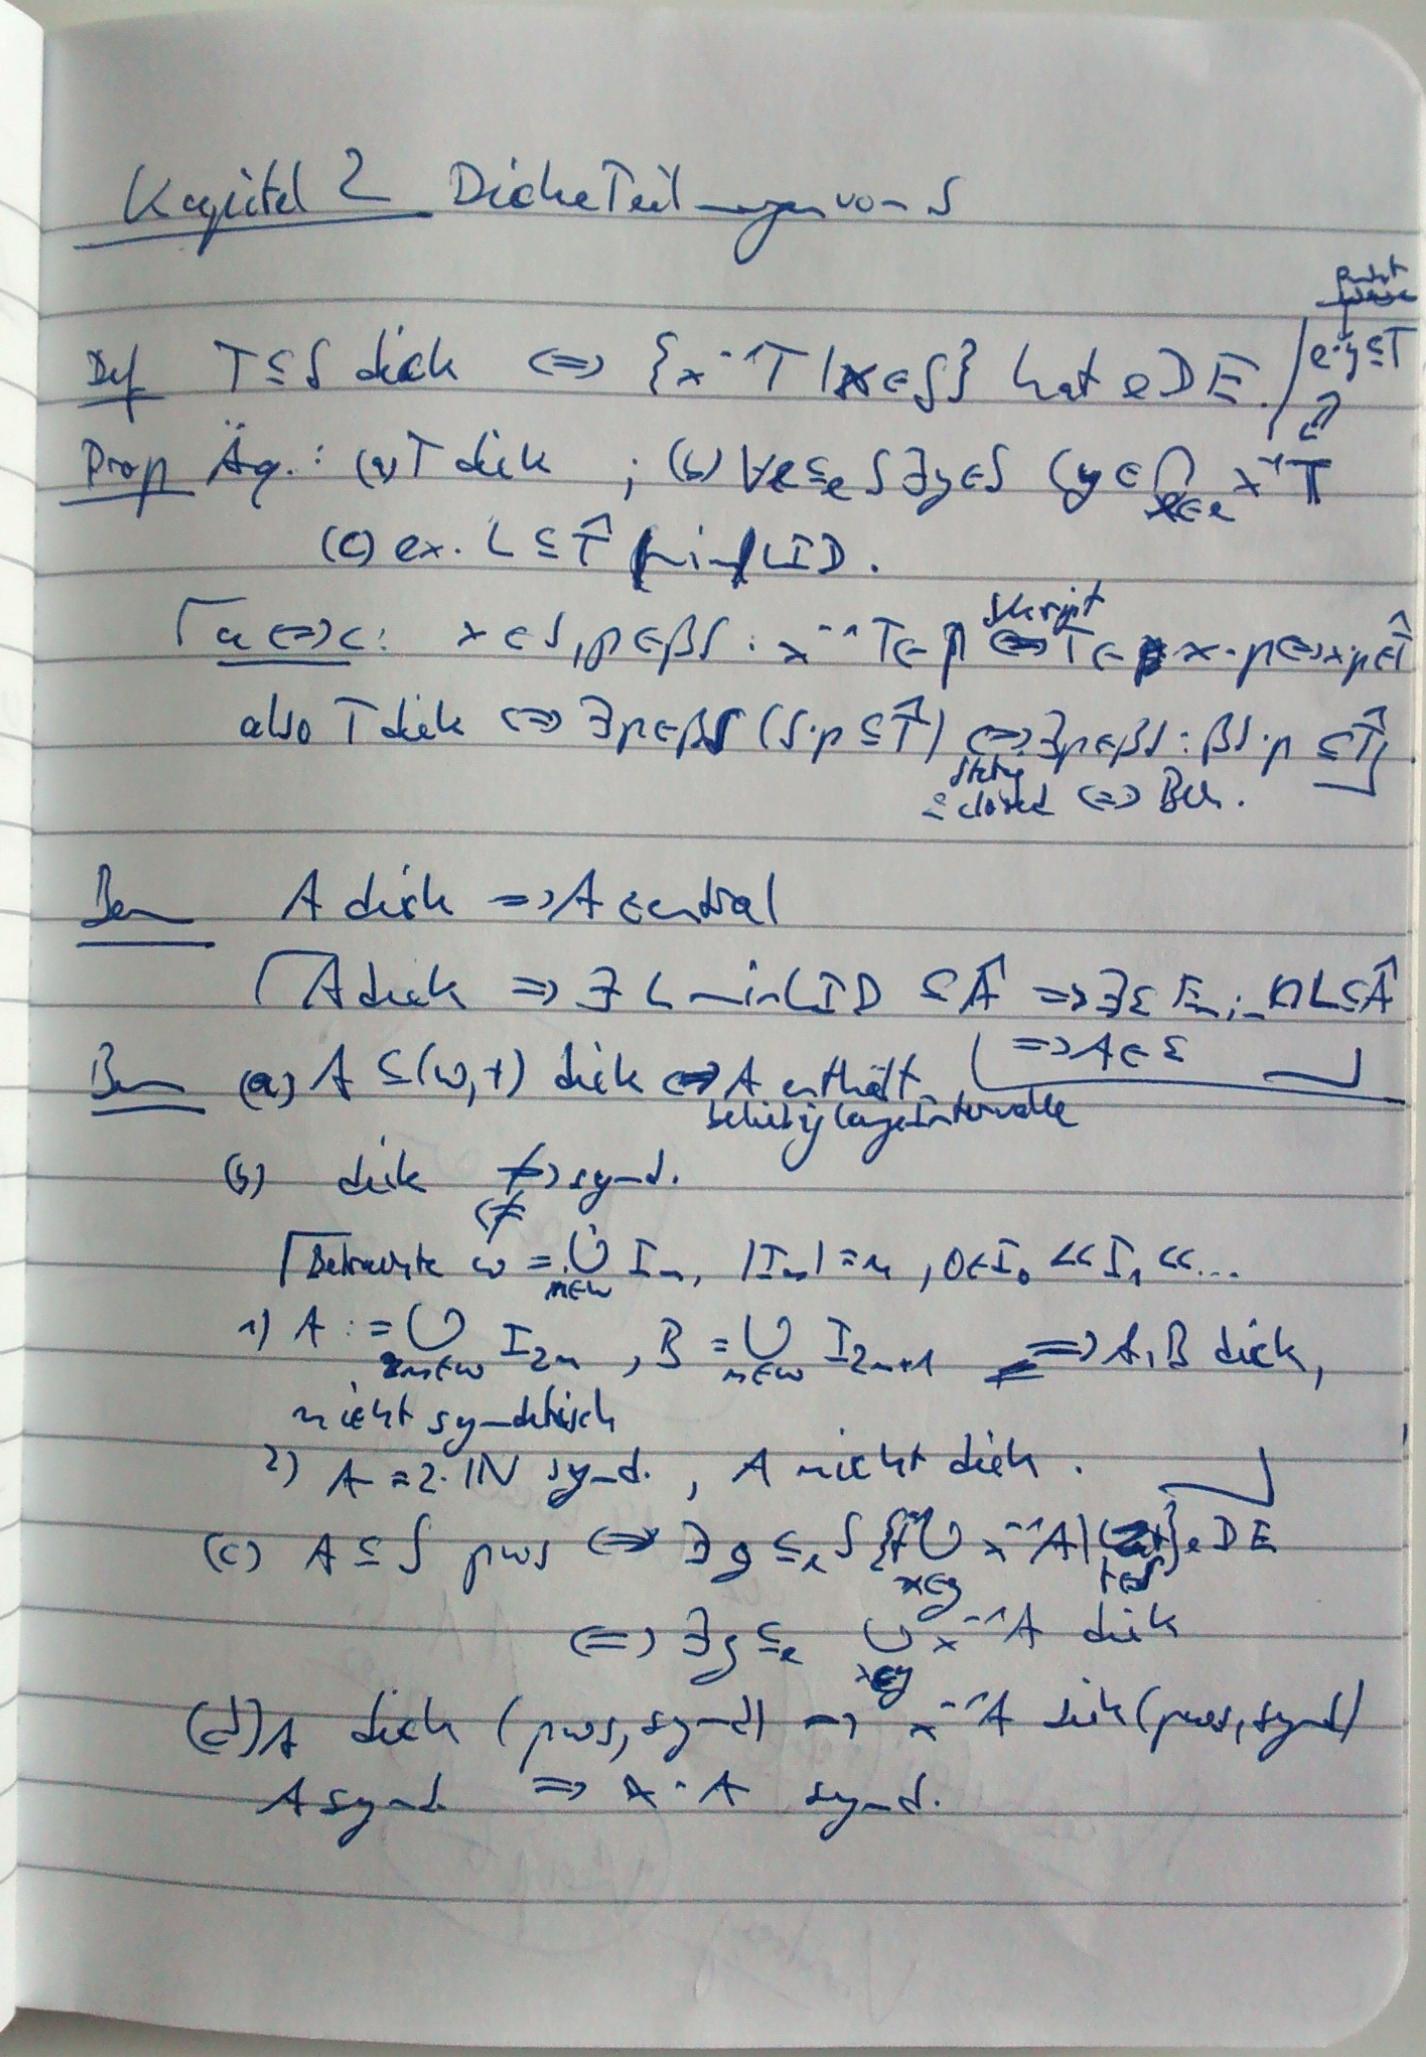 Kapitel 2 Dicke Teilmengen von S
Punktweise
Def T ⊆ S dick ⇔ {x⁻¹T | x ∈ S} hat eDE. / e·y ⊆ T
Prop Äq.: (a) T dick ; (b) ∀e ⊆ₑ S ∃y ∈ S (y ∈ ⋂_{x∈e} x⁻¹T
(c) ex. L ⊆ T̂ min LID.
⌈a ⇔ c: x ∈ S, p ∈ βS : x⁻¹T ∈ p ⇔ (Skript) T ∈ x·p ⇔ x·p ∈ T̂
also T dick ⇔ ∃p ∈ βS (S·p ⊆ T̂) ⇔ ∃p ∈ βS : βS·p ⊆ T̂⌋
Stetig
closed ⇔ Beh.
Bem A dick ⇒ A zentral
⌈A dick ⇒ ∃ L min LID ⊆ Â ⇒ ∃ε E_min ∩ L ⊆ Â
⇒ A ∈ ε ⌋
Bem (a) A ⊆ (ω,+) dick ⇔ A enthält
beliebig lange Intervalle
(b) dick ⇏ synd.
⇍
⌈Betrachte ω = ⋃̇_{n∈ω} Iₙ, |Iₙ| = n, 0 ∈ I₀ << I₁ << ...
1) A := ⋃_{n∈ω} I₂ₙ, B = ⋃_{n∈ω} I₂ₙ₊₁ ⇒ A, B dick,
nicht syndetisch
2) A = 2·ℕ synd., A nicht dick. ⌋
(c) A ⊆ S pws ⇔ ∃g ⊆ₑ S {t⁻¹⋃_{x∈g} x⁻¹A | t∈S} eDE
⇔ ∃g ⊆ₑ ⋃_{x∈g} x⁻¹A dick
(d) A dick (pws, synd) ⇒ x⁻¹A dick (pws, synd)
A synd. ⇒ x·A synd.